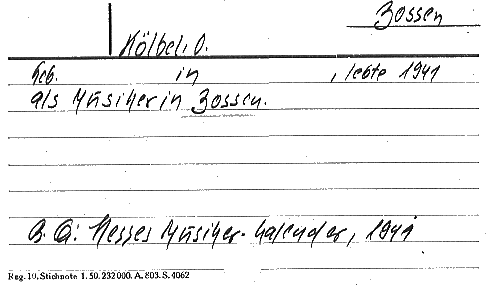 Zossen
Kölbel, O.
Geb. in , lebte 1941
als Musiker in Zossen.
B. Q: Hesses Musiker-Kalender, 1941
Reg. 10. Stichnote 1. 50. 232000. A. 803. S. 4062